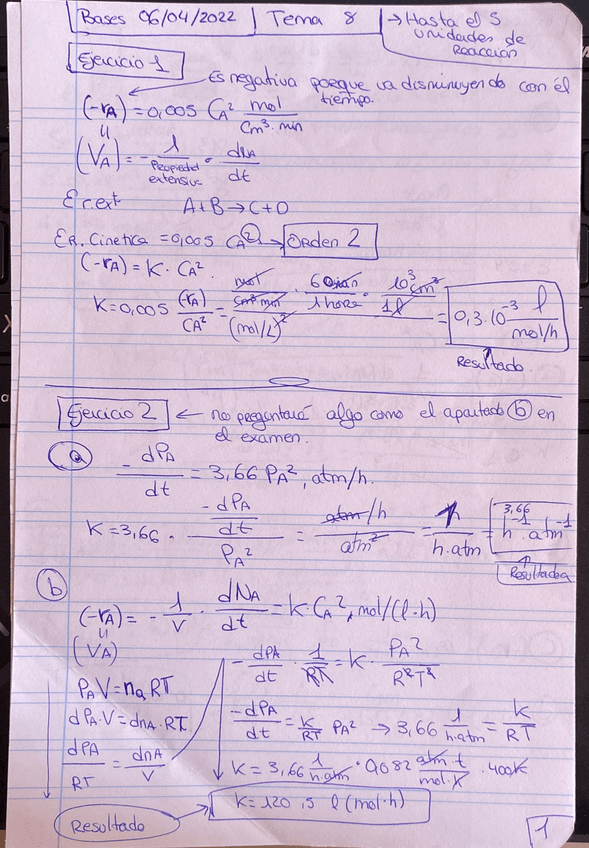 Bases 06/04/2022 | Tema 8
→ Hasta el 5 unidades de Reacción
Ejercicio 1
Es negativa porque va disminuyendo con el tiempo.
(-rA) = 0,005 CA² mol / cm³ · min
(VA) = - 1 / Propiedad extensiva · dNA / dt
Er. ext A+B → C+D
Er. Cinetica = 0,005 CA② → Orden 2
(-rA) = K · CA².
K = 0,005 (rA) / CA² = mol / cm³ min / (mol/L)² · 60 min / 1 hora · 10³ cm³ / 1 l = 0,3 · 10⁻³ l / mol/h
Resultado
Ejercicio 2 ← no preguntará algo como el apartado ⓑ en el examen.
ⓐ - dPA / dt = 3,66 PA², atm/h.
K = 3,66 · -dPA / dt / PA² = atm/h / atm² = 1 / h·atm = 3,66 h⁻¹ · atm⁻¹
Resultado
ⓑ (-rA) = - 1 / V · dNA / dt = K · CA², mol/(l·h)
(VA)
- dPA / dt · 1 / RT = K · PA² / R²T²
PA V = na RT
dPA · V = dnA · RT
-dPA / dt = K / RT PA² → 3,66 1 / h·atm = K / RT
dPA / RT = dnA / V
K = 3,66 1 / h·atm · 0,082 atm · l / mol · K · 400K
Resultado → K = 120,15 l (mol·h)
1